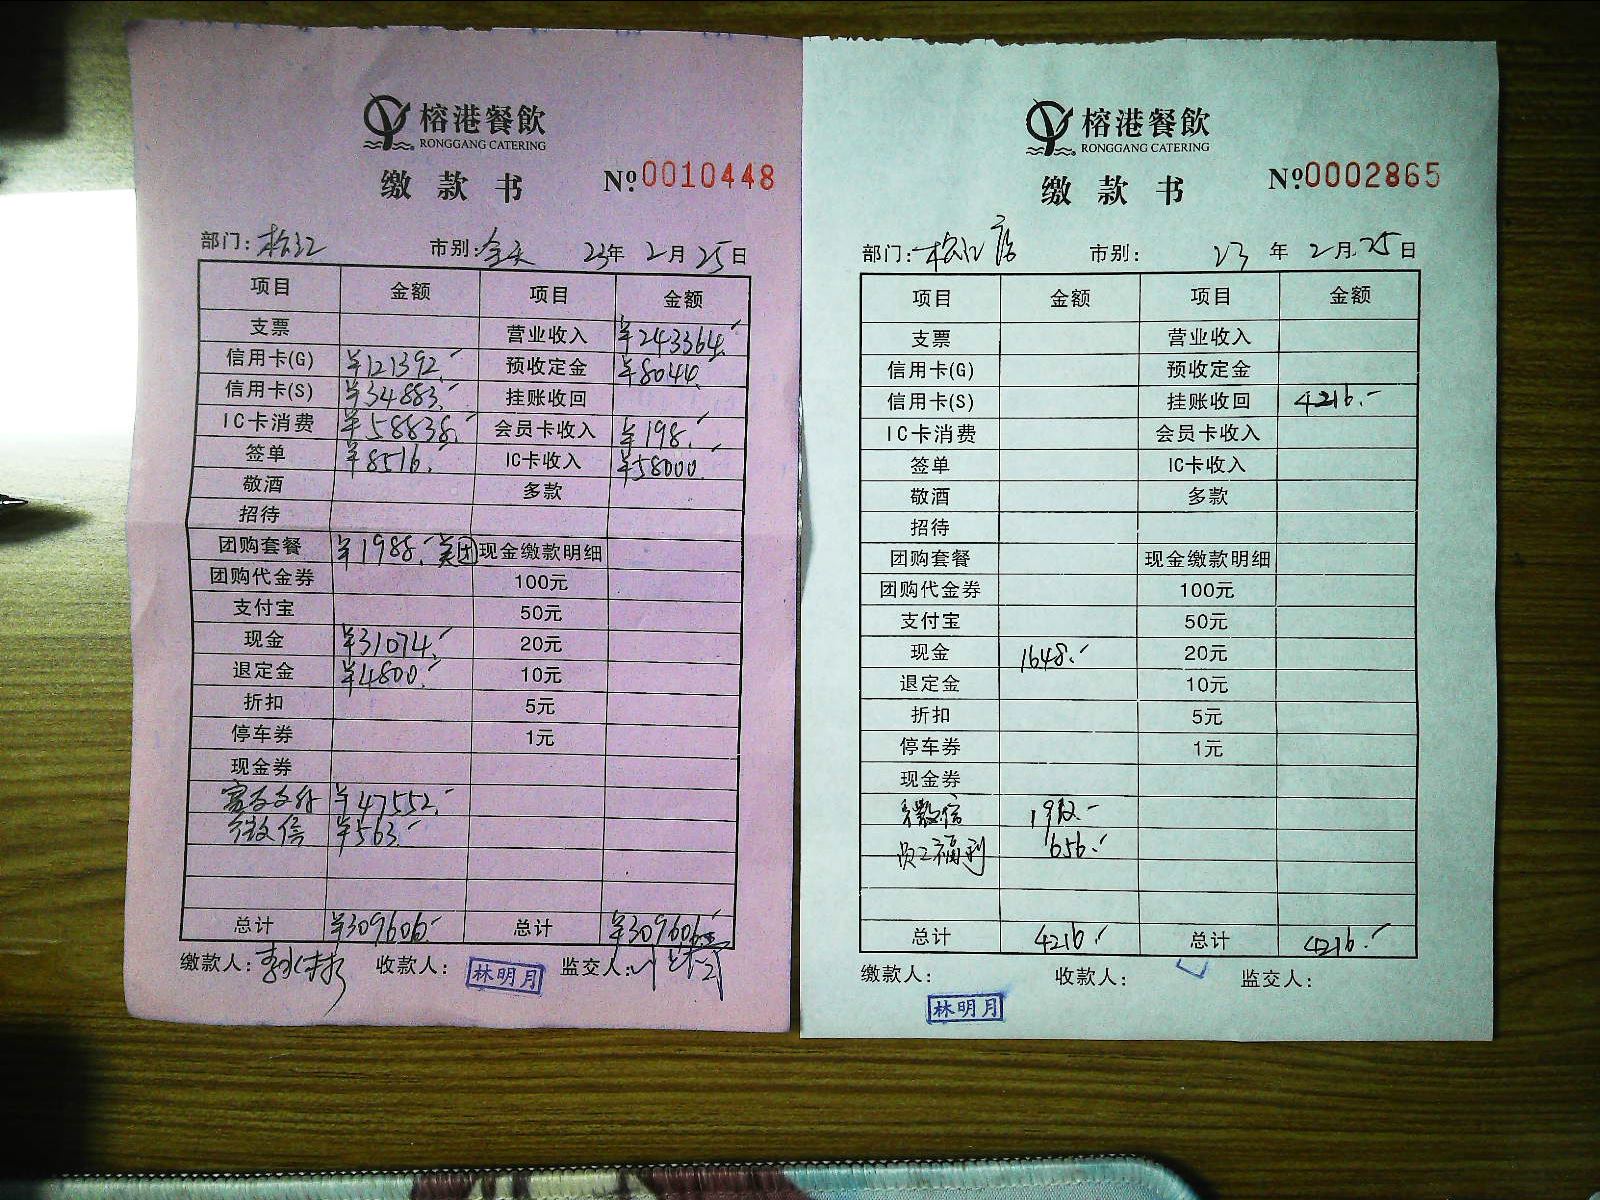 榕港餐飲
RONGGANG CATERING
缴款书 №0010448
部门：松江 市别：全天 23年 2月 25日
项目 金额 项目 金额
支票 营业收入 ¥243364.-
信用卡(G) ¥121392.- 预收定金 ¥8044.-
信用卡(S) ¥34883.- 挂账收回
IC卡消费 ¥58838.- 会员卡收入 ¥198.-
签单 ¥8516.- IC卡收入 ¥58000.-
敬酒 多款
招待
团购套餐 ¥1988.- 美团 现金缴款明细
团购代金券 100元
支付宝 50元
现金 ¥31074.- 20元
退定金 ¥4800.- 10元
折扣 5元
停车券 1元
现金券
支付 ¥47552.-
微信 ¥563.-
总计 ¥309606.- 总计 ¥309606.-
缴款人： 收款人： 林明月 监交人：
榕港餐飲
RONGGANG CATERING
缴款书 №0002865
部门：松江店 市别： 23 年 2月 25日
项目 金额 项目 金额
支票 营业收入
信用卡(G) 预收定金
信用卡(S) 挂账收回 4216.-
IC卡消费 会员卡收入
签单 IC卡收入
敬酒 多款
招待
团购套餐 现金缴款明细
团购代金券 100元
支付宝 50元
现金 1648.- 20元
退定金 10元
折扣 5元
停车券 1元
现金券
微信 1912.-
员工福利 656.-
总计 4216.- 总计 4216.-
缴款人： 收款人： 监交人：
林明月